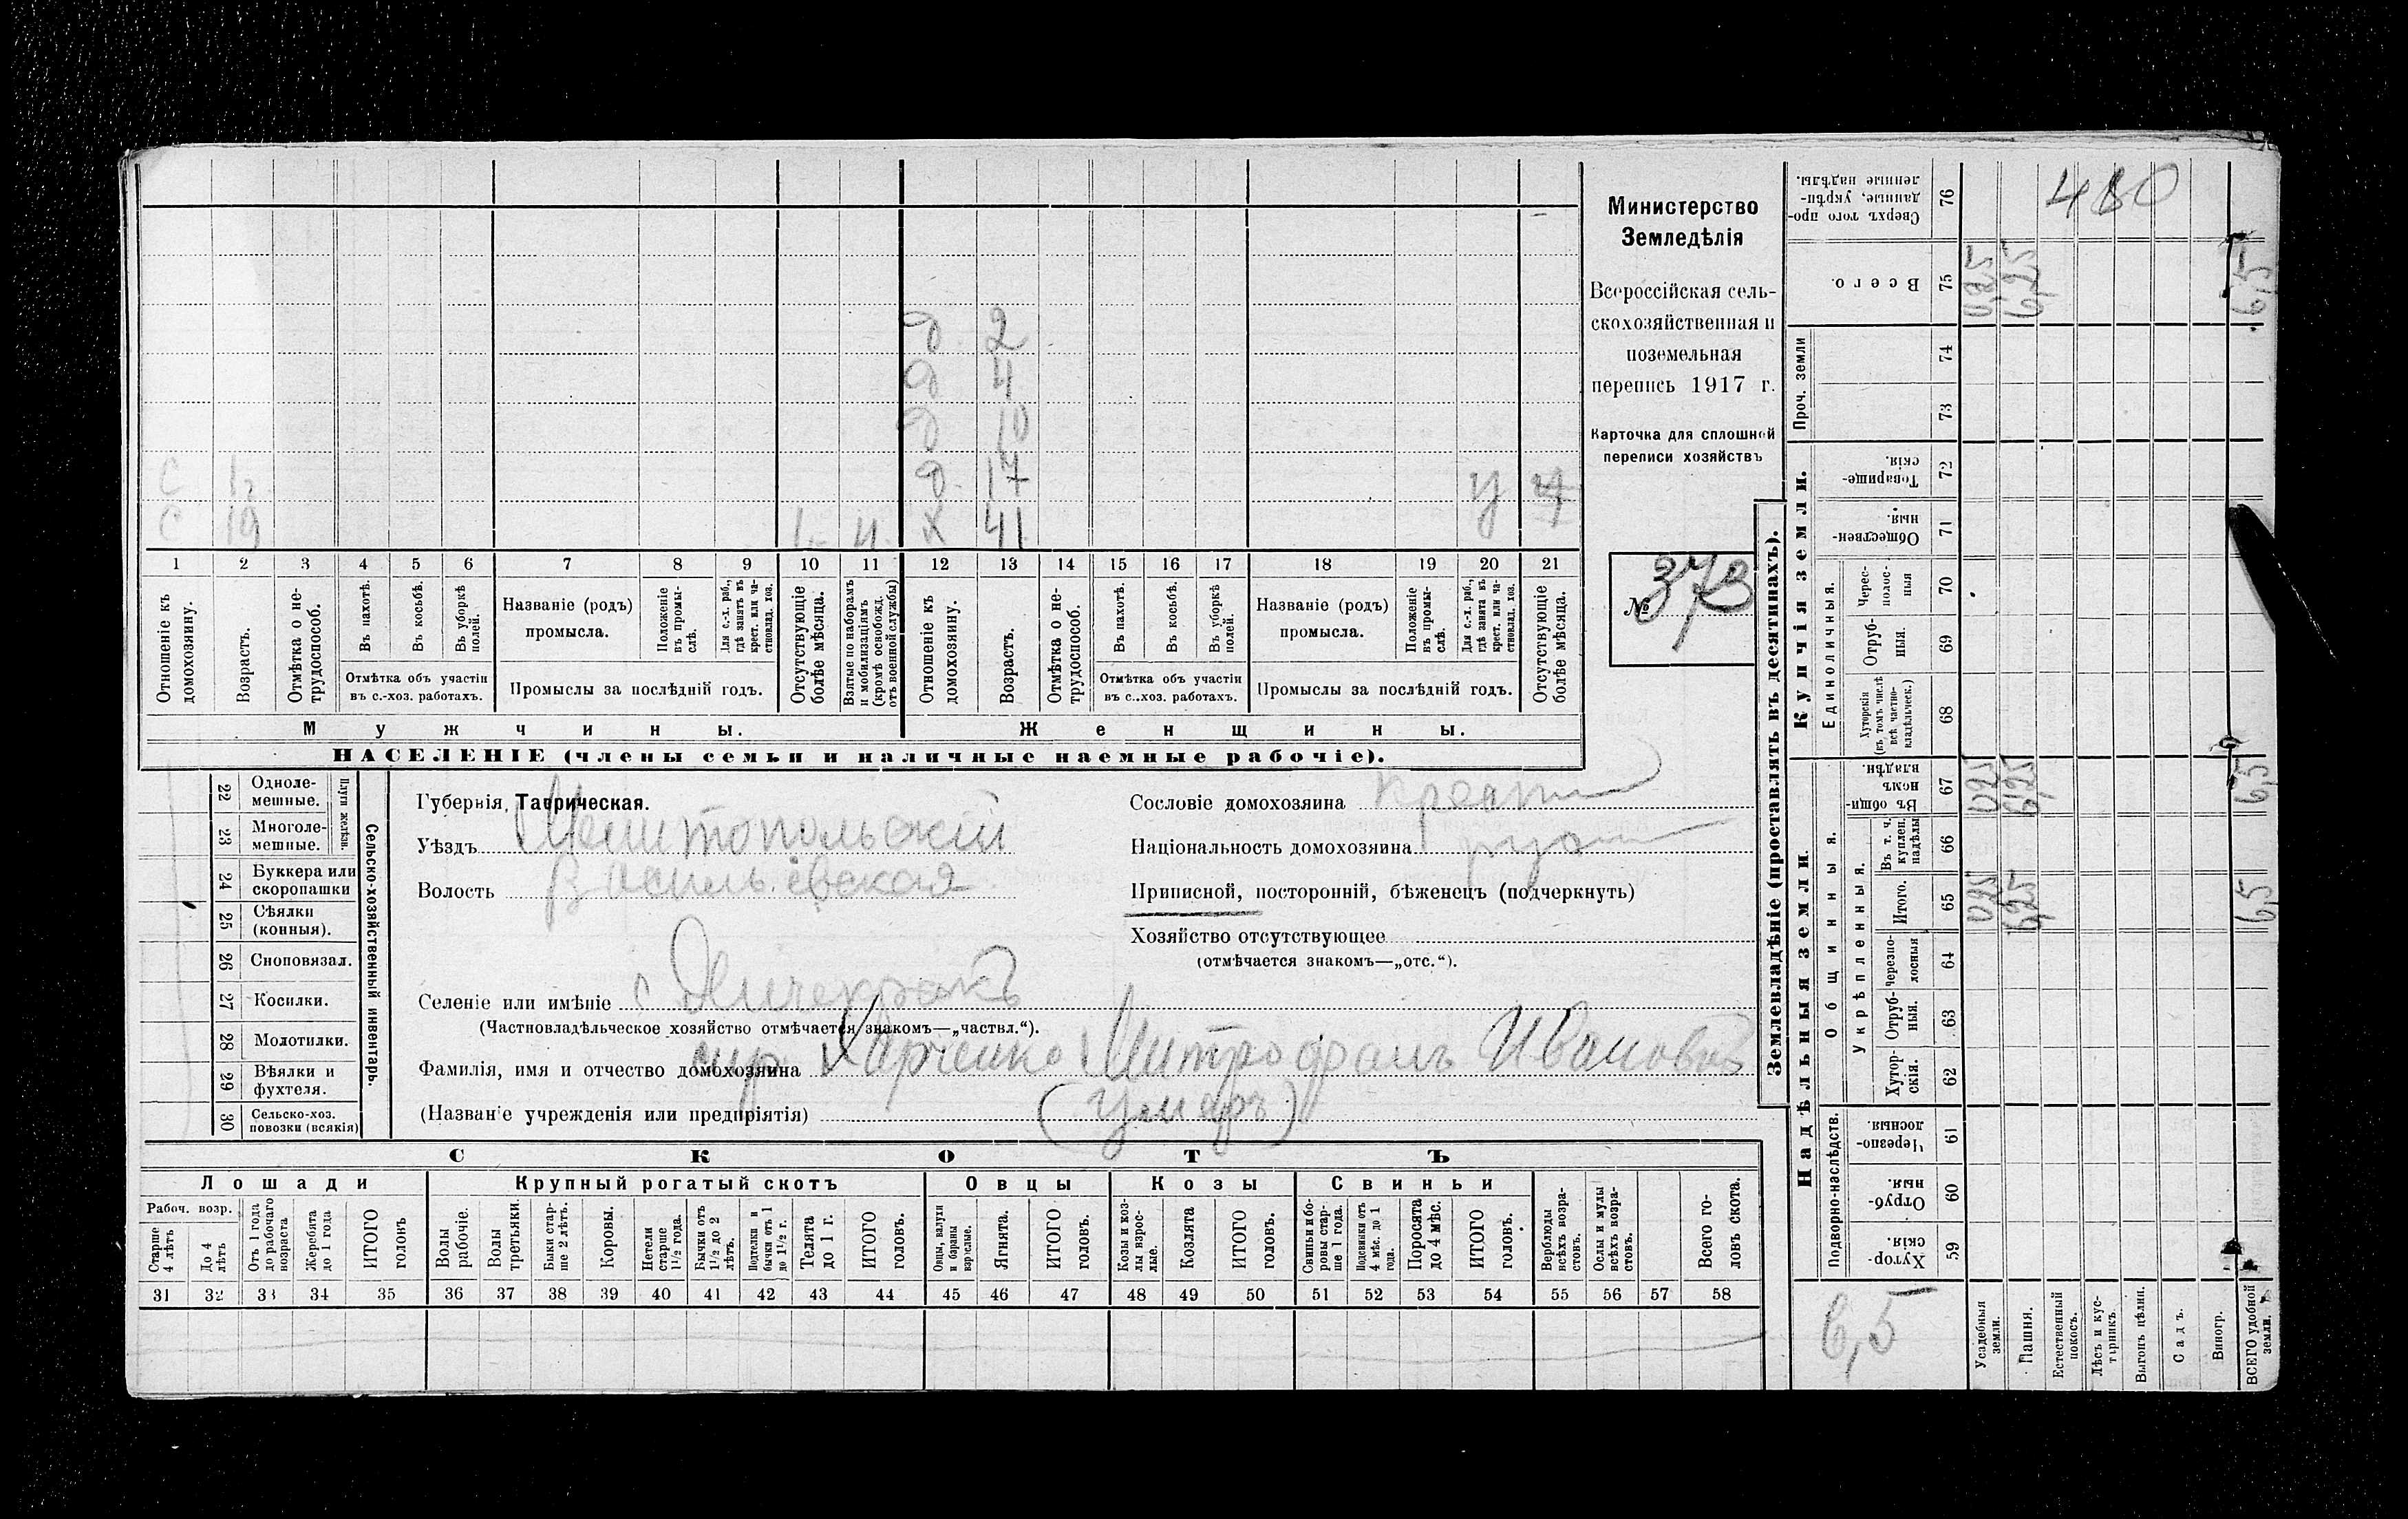 480
Министерство
Земледѣлія
Всероссійская сель-
скохозяйственная и
поземельная
перепись 1917 г.
Карточка для сплошной
переписи хозяйствъ
№ 373
д 2
д 4
д 10
С д 17 У
С 19 1 и х 41
1 2 3 4 5 6 7 8 9 10 11 12 13 14 15 16 17 18 19 20 21
Отношеніе къ домохозяину.
Возрастъ.
Отмѣтка о не-трудоспособ.
Въ пахотѣ.
Въ косьбѣ.
Въ уборкѣ полей.
Отмѣтка объ участіи
въ с.-хоз. работахъ.
Названіе (родъ)
промысла.
Положеніе въ промы-слѣ.
Для с.-х. раб., гдѣ занятъ въ крест. или ча-стновлад. хоз.
Промыслы за послѣдній годъ.
Отсутствующіе болѣе мѣсяца.
Взятые по наборамъ и мобилизаціямъ (кромѣ освобожд. отъ военной службы)
Отношеніе къ домохозяину.
Возрастъ.
Отмѣтка о не-трудоспособ.
Въ пахотѣ.
Въ косьбѣ.
Въ уборкѣ полей.
Отмѣтка объ участіи
въ с.-хоз. работахъ.
Названіе (родъ)
промысла.
Положеніе въ промы-слѣ.
Для с.-х. раб., гдѣ занята въ крест. или ча-стновлад. хоз.
Промыслы за послѣдній годъ.
Отсутствующіе болѣе мѣсяца.
Мужчины. Женщины.
НАСЕЛЕНІЕ (члены семьи и наличные наемные рабочіе).
22 Одноле-мешные.
23 Многоле-мешные.
Плуги желѣзн.
24 Буккера или скоропашки
25 Сѣялки (конныя).
26 Сноповязал.
27 Косилки.
28 Молотилки.
29 Вѣялки и фухтеля.
30 Сельско-хоз. повозки (всякія)
Сельско-хозяйственный инвентарь.
Губернія Таврическая.
Уѣздъ Мелитопольскій
Волость Васильевская
Селеніе или имѣніе с
(Частновладѣльческое хозяйство отмѣчается знакомъ—„частвл.“).
Фамилія, имя и отчество домохозяина Харченко Митрофанъ Ивановъ
(Названіе учрежденія или предпріятія) (умеръ)
Сословіе домохозяина крест
Національность домохозяина русск
Приписной, посторонній, бѣженецъ (подчеркнуть)
Хозяйство отсутствующее
(отмѣчается знакомъ—„отс.“).
СКОТЪ
Лошади Крупный рогатый скотъ Овцы Козы Свиньи
Рабоч. возр.
Старше 4 лѣтъ
До 4 лѣтъ
Отъ 1 года до рабочаго возраста
Жеребята до 1 года
ИТОГО головъ
Волы рабочіе.
Волы третьяки.
Быки стар-ше 2 лѣтъ.
Коровы.
Нетели старше 1½ года.
Бычки отъ 1½ до 2 лѣтъ.
Подтелки и бычки отъ 1 до 1½ г.
Телята до 1 г.
ИТОГО головъ.
Овцы, валухи и бараны взрослые.
Ягнята.
ИТОГО головъ.
Козы и коз-лы взрос-лые.
Козлята
ИТОГО головъ.
Свиньи и бо-ровы стар-ше 1 года.
Подсвинки отъ 4 мѣс. до 1 года.
Поросята до 4 мѣс.
ИТОГО головъ.
Верблюды всѣхъ возра-стовъ.
Ослы и мулы всѣхъ возра-стовъ.
Всего го-ловъ скота.
31 32 33 34 35 36 37 38 39 40 41 42 43 44 45 46 47 48 49 50 51 52 53 54 55 56 57 58
Землевладѣніе (проставлять въ десятинахъ).
Купчія земли.
Надѣльныя земли.
Сверхъ того про-данные, укрѣп-ленные надѣлы. 76
Всего. 75 0,25 6,25 6,5
Проч. земли 74 73
Товарище-скія. 72
Обществен-ныя. 71
Единоличныя.
Черес-полос-ныя 70
Отруб-ныя. 69
Хуторскія (въ томъ числѣ всѣ частно-владѣльческ.) 68
Общинныя.
Въ общин-номъ владѣн. 67 0,25 6,25 6,5
Укрѣпленныя.
Въ т. ч. куплен. надѣлы 66
Итого. 65 0,25 6,25 6,5
Черезпо-лосныя 64
Отруб-ныя. 63
Хутор-скія. 62
Подворно-наслѣдств.
Черезпо-лосныя. 61
Отруб-ныя. 60
Хутор-скія. 59
6,5
Усадебныя земли.
Пашня.
Естественный покосъ.
Лѣсъ и кус-тарникъ.
Выгонъ цѣлин.
Садъ.
Виногр.
ВСЕГО удобной земли.